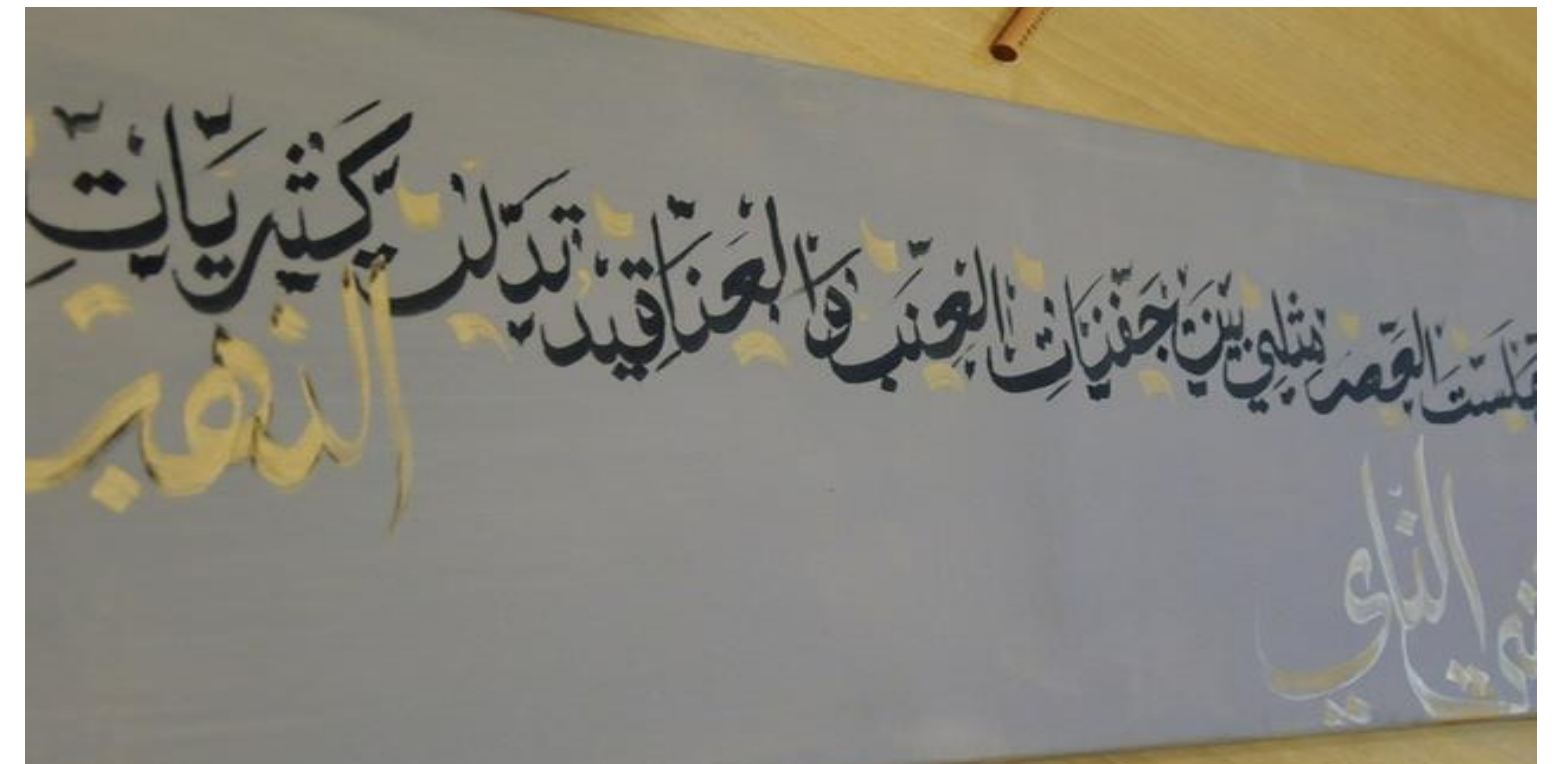 جلست العصر مثلي بين جفنات العنب والعناقيد تدلت كثريات
الذهب
الناي